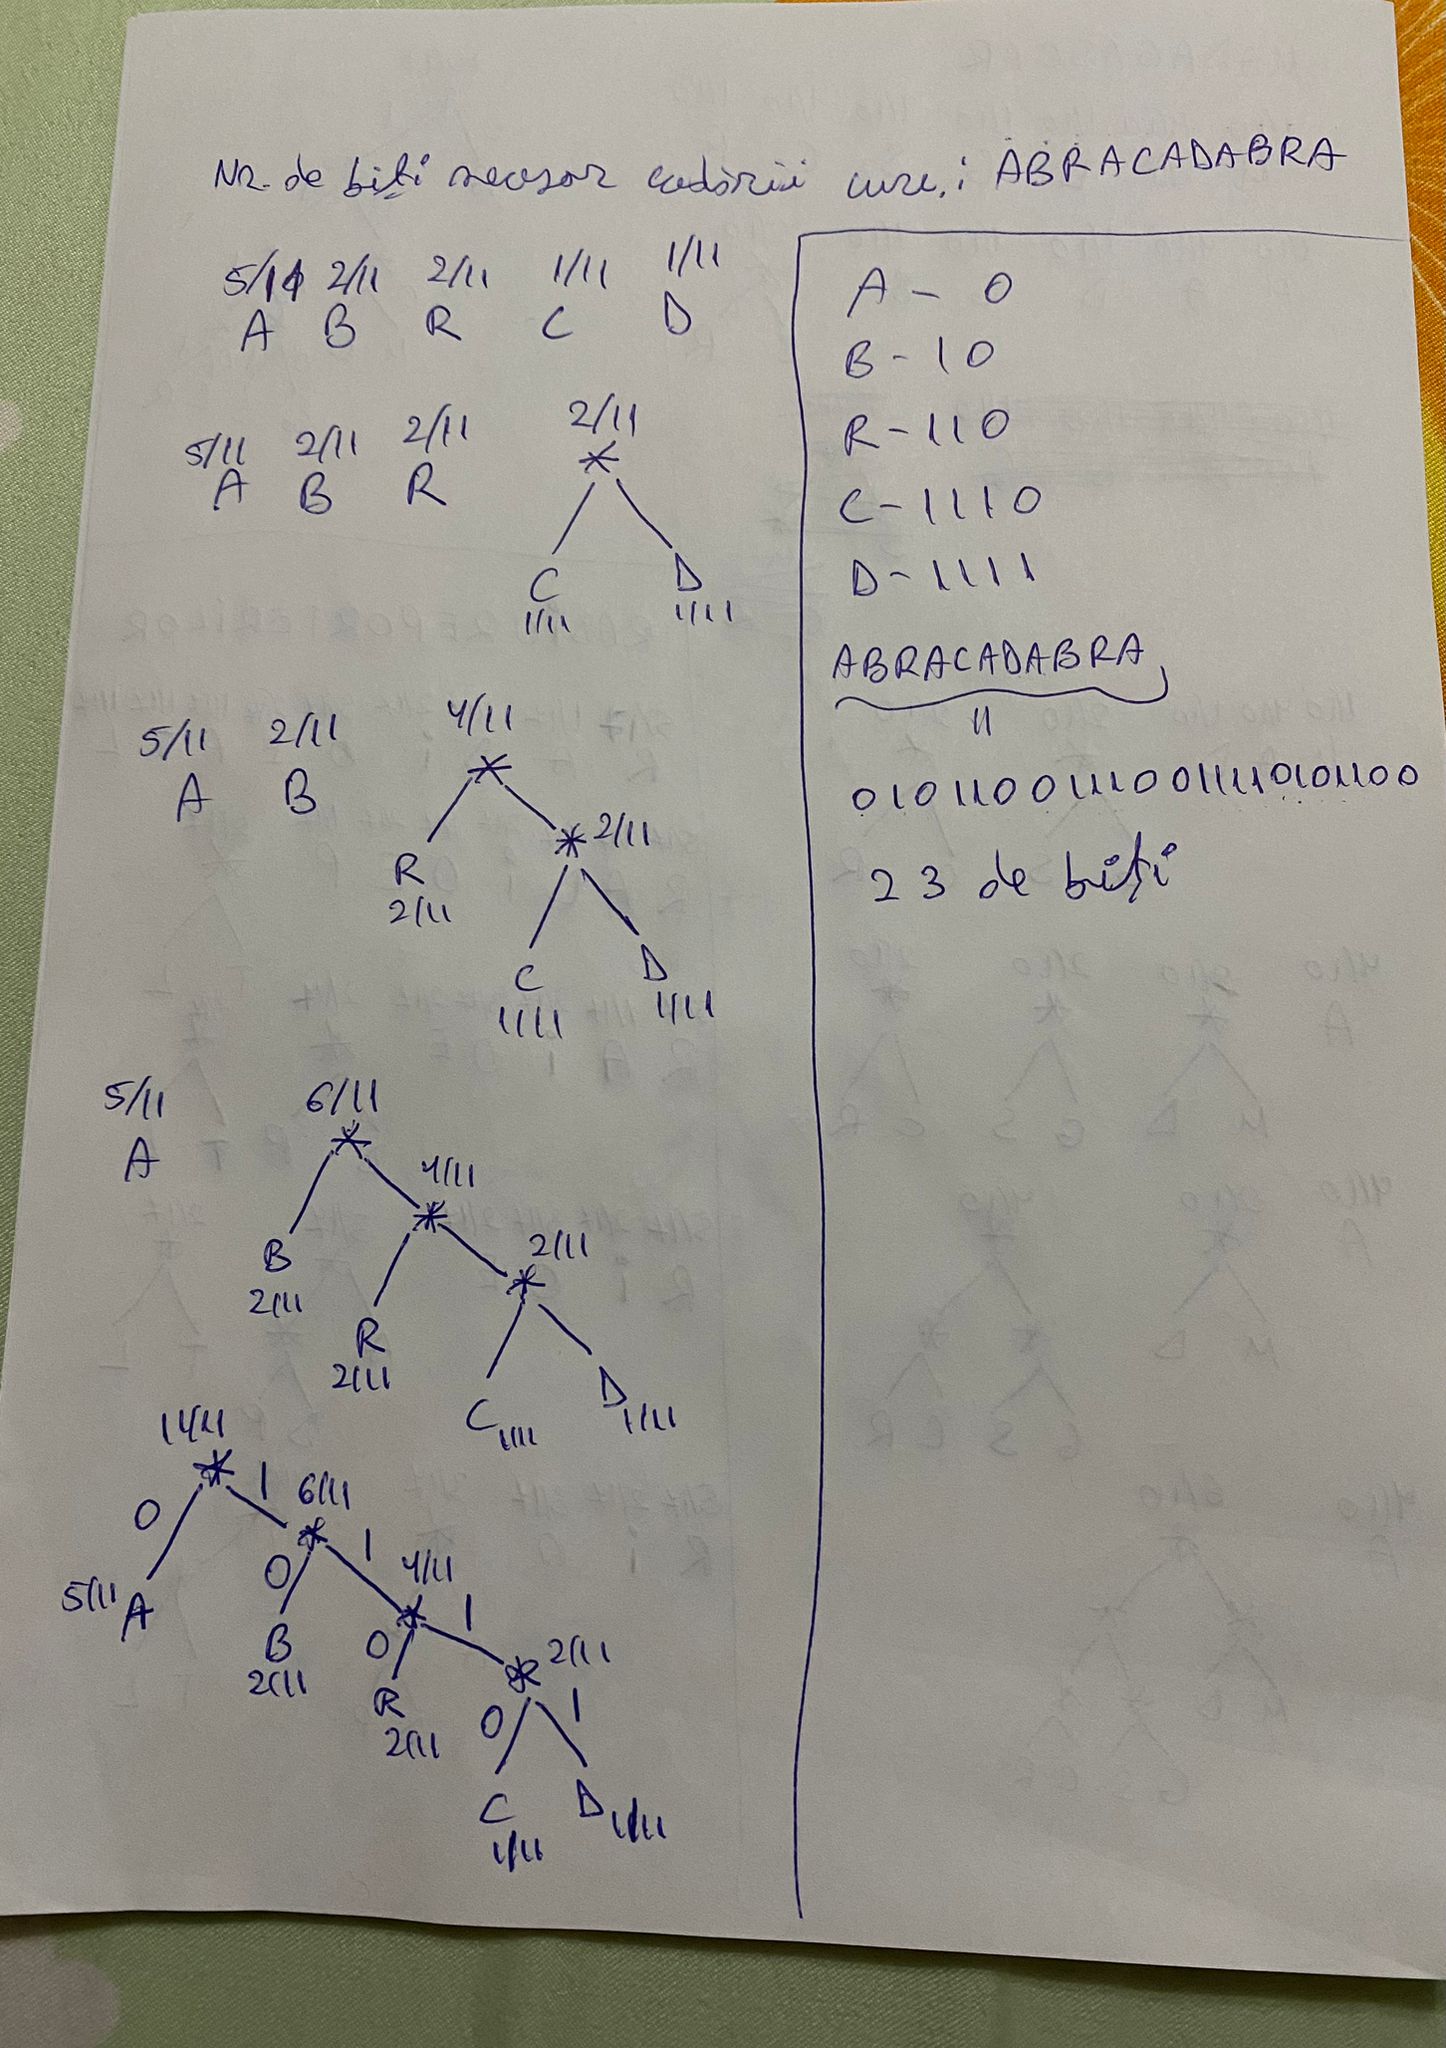 Nr. de biți necesar codării cuv.: ABRACADABRA
5/11 2/11 2/11 1/11 1/11
A B R C D
5/11 2/11 2/11 2/11
A B R *
C D
1/11 1/11
5/11 2/11 4/11
A B *
R * 2/11
2/11
C D
1/11 1/11
5/11 6/11
A *
4/11
*
B 2/11
2/11 *
R
2/11
C 1/11 D 1/11
11/11
*
0 1 6/11
*
5/11 A 0 1 4/11
*
B 0 1 2/11
2/11 *
R 0 1
2/11
C D 1/11
1/11
A - 0
B - 10
R - 110
C - 1110
D - 1111
ABRACADABRA
=
01011001110011110101100
23 de biți